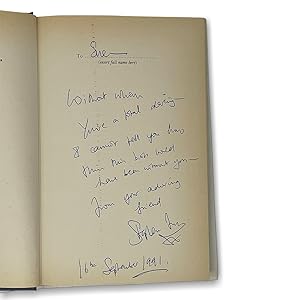 To Sue
(insert full name here)
Without whom
You're a total darling
I cannot tell you how
thin this book would
have been without you —
From your adoring
friend
Stephen
16th September 1991.